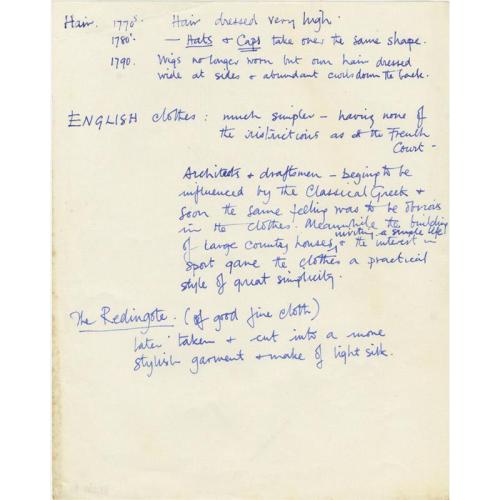 Hair. 1770s. Hair dressed very high.
1780s. – Hats & Caps take over the same shape.
1790. Wigs no longer worn but own hair dressed
wide at sides & abundant curls down the back.
ENGLISH clothes: much simpler – having none of
the restrictions as at the French
Court –
Architects & draftsmen – begin to be
influenced by the Classical Greek &
soon the same feeling was to be obvious
in the clothes. Meanwhile the building
inviting a simple life
of large country houses, & the interest in
sport gave the clothes a practical
style of great simplicity.
The Redingote. (of good fine cloth)
later taken & cut into a more
stylish garment & make of light silk.